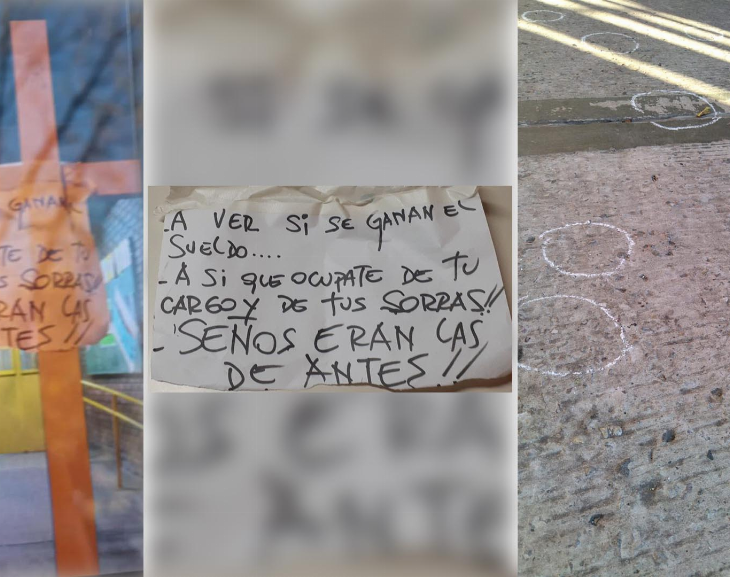 GANAN
TE DE TU
S SORRAS
RAN LAS
TES !!
_A VER SI SE GANAN EL
SUELDO....
_A SI QUE OCUPATE DE TU
CARGO Y DE TUS SORRAS!!
_'SEÑOS ERAN LAS
DE ANTES!!